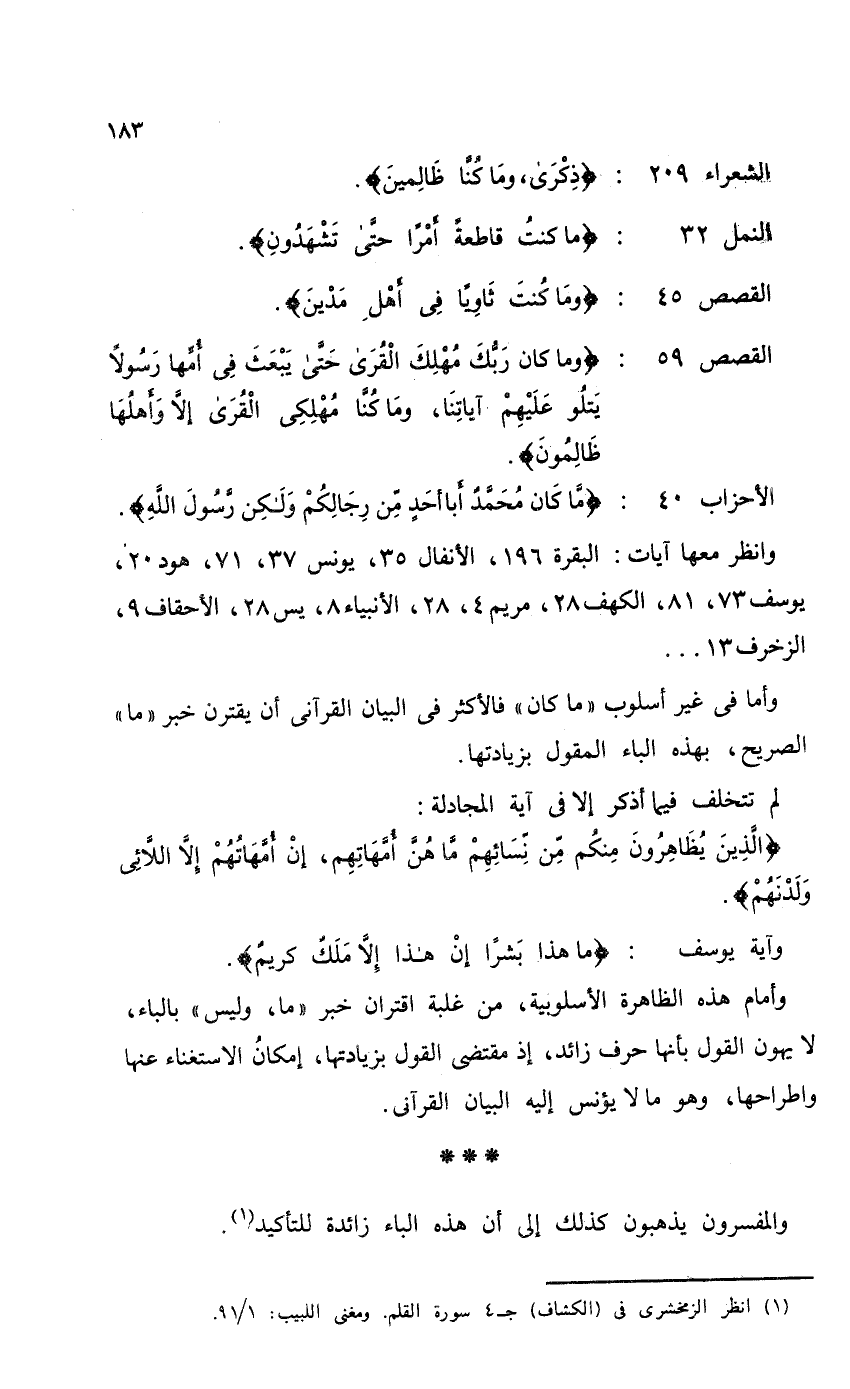 ١٨٣
الشعراء ٢٠٩ : ﴿ذِكْرَىٰ، ومَا كُنَّا ظَالِمينَ﴾.
النمل ٣٢ : ﴿ما كنتُ قاطعةً أَمْرًا حتَّىٰ تَشْهَدُونِ﴾.
القصص ٤٥ : ﴿ومَا كُنتَ ثَاوِيًا فِى أَهْلِ مَدْينَ﴾.
القصص ٥٩ : ﴿وما كان رَبُّكَ مُهْلِكَ الْقُرَىٰ حَتَّىٰ يَبْعَثَ فِى أُمِّها رَسُولاً
يَتلُو عَلَيْهِمْ آياتِنَا، ومَا كُنَّا مُهْلِكِى الْقُرَىٰ إلاَّ وَأَهلُهَا
ظَالِمُونَ﴾.
الأحزاب ٤٠ : ﴿مَّا كَان مُحَمَّدٌ أبا أحَدٍ مِّن رِجَالِكُمْ وَلَـٰكِن رَّسُولَ اللَّهِ﴾.
وانظر معها آيات : البقرة ١٩٦، الأنفال ٣٥، يونس ٣٧، ٧١، هود ٢٠،
يوسف ٧٣، ٨١، الكهف ٢٨، مريم ٤، ٢٨، الأنبياء ٨، يس ٢٨، الأحقاف ٩،
الزخرف ١٣ ...
وأما فى غير أسلوب «ما كان» فالأكثر فى البيان القرآنى أن يقترن خبر «ما»
الصريح، بهذه الباء المقول بزيادتها.
لم تتخلف فيما أذكر إلا فى آية المجادلة :
﴿الَّذِينَ يُظَاهِرُونَ مِنكُم مِّن نِّسَائِهِمْ مَّا هُنَّ أُمَّهَاتِهِم، إنْ أُمَّهَاتُهُمْ إِلاَّ اللاَّئِى
وَلَدْنَهُمْ﴾.
وآية يوسف : ﴿ما هذا بَشرًا إنْ هـٰذا إِلاَّ مَلَكٌ كريمٌ﴾.
وأمام هذه الظاهرة الأسلوبية، من غلبة اقتران خبر «ما، وليس» بالباء،
لا يهون القول بأنها حرف زائد، إذ مقتضى القول بزيادتها، إمكانُ الاستغناء عنها
واطراحها، وهو ما لا يؤنس إليه البيان القرآنى.
***
والمفسرون يذهبون كذلك إلى أن هذه الباء زائدة للتأكيد(١).
(١) انظر الزمخشرى فى (الكشاف) جـ٤ سورة القلم. ومغنى اللبيب: ٩١/١.